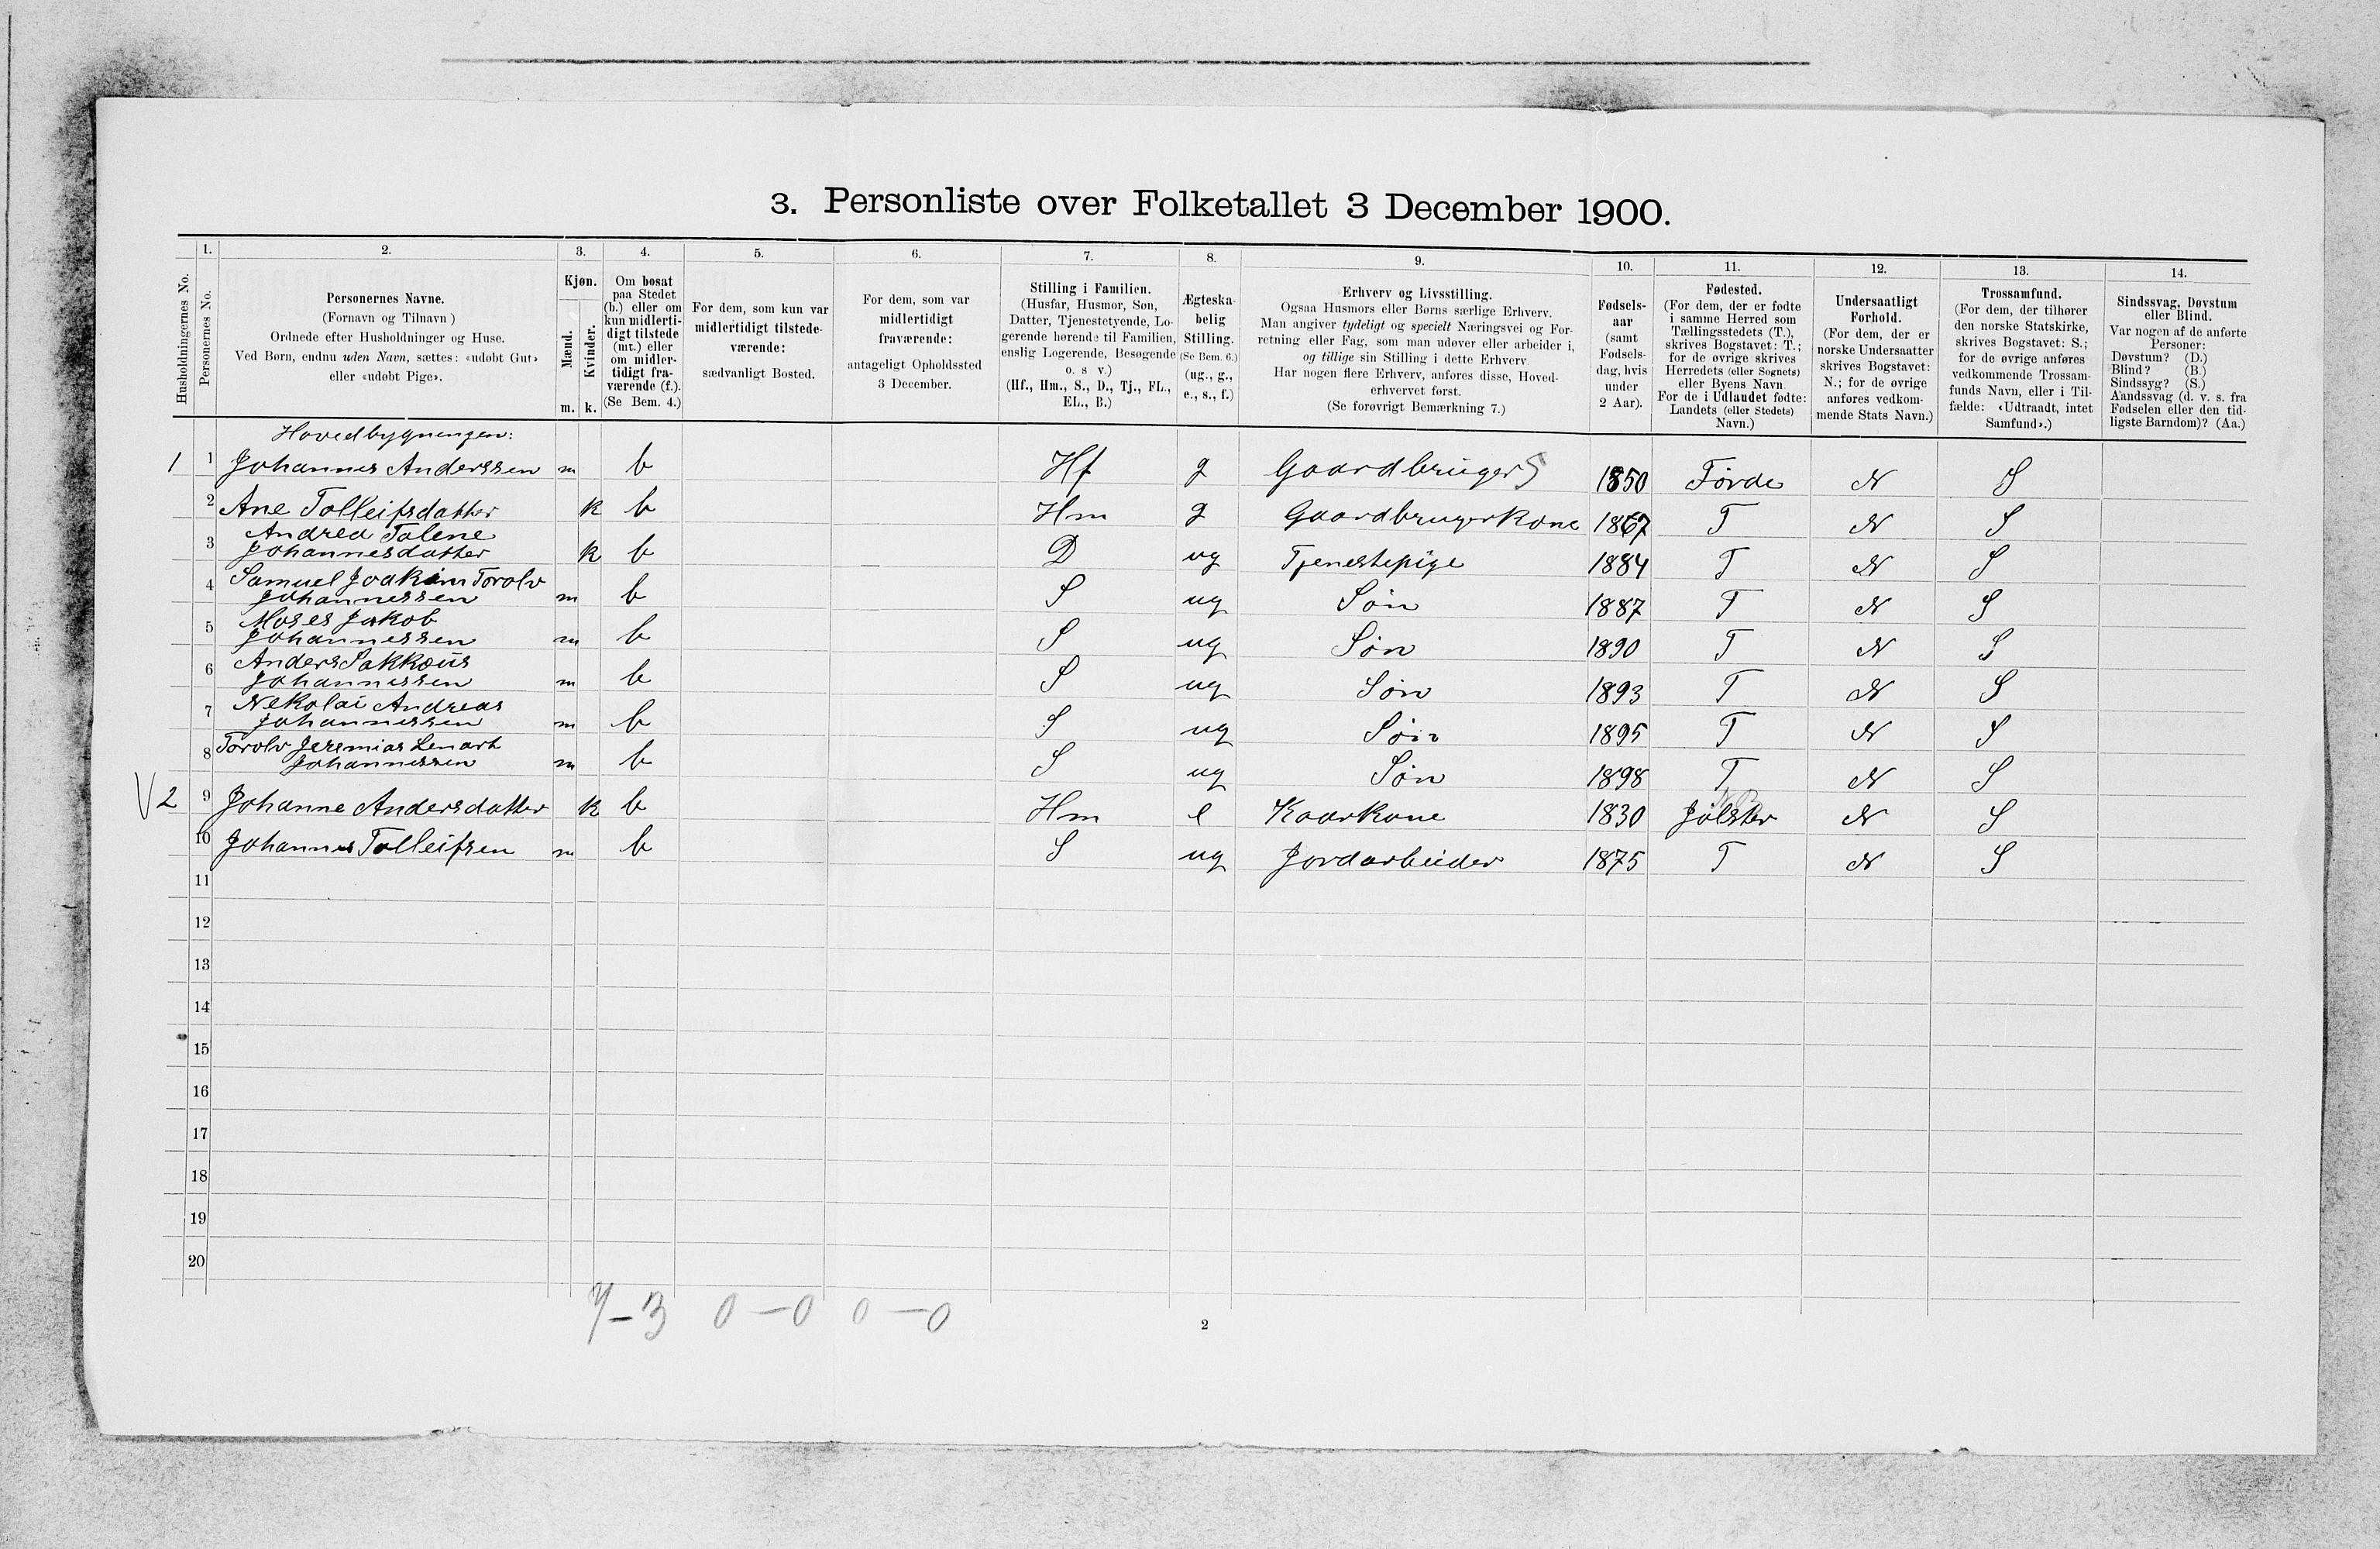 3. Personliste over Folketallet 3 December 1900.
1. 2. 3. 4. 5. 6. 7. 8. 9. 10. 11. 12. 13. 14.
Husholdningernes No.
Personernes No.
Personernes Navne.
(Fornavn og Tilnavn )
Ordnede efter Husholdninger og Huse.
Ved Børn, endnu uden Navn, sættes: «udøbt Gut»
eller «udøbt Pige».
Kjøn.
Mænd.
Kvinder.
m. k.
Om bosat
paa Stedet
(b.) eller om
kun midlerti-
digt tilstede
(mt.) eller
om midler-
tidigt fra-
værende (f.).
(Se Bem. 4.)
For dem, som kun var
midlertidigt tilstede-
værende:
sædvanligt Bosted.
For dem, som var
midlertidigt
fraværende:
antageligt Opholdssted
3 December.
Stilling i Familien.
(Husfar, Husmor, Søn,
Datter, Tjenestetyende, Lo-
gerende hørende til Familien,
enslig Logerende, Besøgende
o. s v.)
(Hf., Hm., S., D., Tj., FL.,
EL., B.)
Ægteska-
belig
Stilling.
(Se Bem. 6.)
(ug., g.,
e., s., f.)
Erhverv og Livsstilling.
Ogsaa Husmors eller Børns særlige Erhverv.
Man angiver tydeligt og specielt Næringsvei og For-
retning eller Fag, som man udøver eller arbeider i,
og tillige sin Stilling i dette Erhverv
Har nogen flere Erhverv, anføres disse, Hoved-
erhvervet først.
(Se forøvrigt Bemærkning 7.)
Fødsels-
aar
(samt
Fødsels-
dag, hvis
under
2 Aar).
Fødested.
(For dem, der er fødte
i samme Herred som
Tællingsstedets (T.),
skrives Bogstavet: T.;
for de øvrige skrives
Herredets (eller Sognets)
eller Byens Navn
For de i Udlandet fødte:
Landets (eller Stedets)
Navn.)
Undersaatligt
Forhold.
(For dem, der er
norske Undersaatter
skrives Bogstavet:
N.; for de øvrige
anføres vedkom-
mende Stats Navn.)
Trossamfund.
(For dem, der tilhører
den norske Statskirke,
skrives Bogstavet: S.;
for de øvrige anføres
vedkommende Trossam-
funds Navn, eller i Til-
fælde: «Udtraadt, intet
Samfund».)
Sindssvag, Døvstum
eller Blind.
Var nogen af de anførte
Personer:
Døvstum? (D.)
Blind? (B.)
Sindssyg? (S.)
Aandssvag (d. v. s. fra
Fødselen eller den tid-
ligste Barndom)? (Aa.)
Hovedbygningen:
1 1 Johannes Anderssen m b Hf g Gaardbruger S 1850 Førde N S
2 Ane Tolleifsdatter k b Hm g Gaardbrugerkone 1867 T N S
Andrea Talene
3 Johannesdatter k b D ug Tjenestepige 1884 T N S
Samuel Joakim Torolv
4 Johannessen m b S ug Søn 1887 T N S
Moses Jakob
5 Johannessen m b S ug Søn 1890 T N S
Anders Sakkæus
6 Johannessen m b S ug Søn 1893 T N S
Nekolai Andreas
7 Johannessen m b S ug Søn 1895 T N S
Torolv Jeremias Lenart
8 Johannessen m b S ug Søn 1898 T N S
V 2 9 Johanne Andersdatter k b Hm e Kaarkone 1830 Jølster N S
10 Johannes Tolleifsen m b S ug Jordarbeider 1875 T N S
11
12
13
14
15
16
17
18
19
20
7–3 0–0 0–0
2